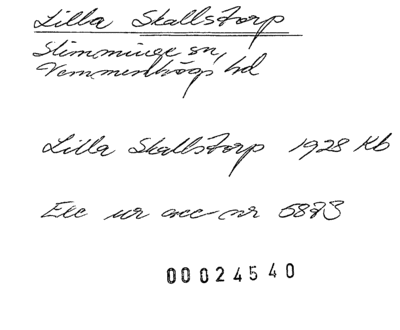 Lilla Skallstorp
Slimminge sn,
Vemmenhögs hd
Lilla Skallstorp 1928 Kb
Exc ur acc nr 5883
00024540